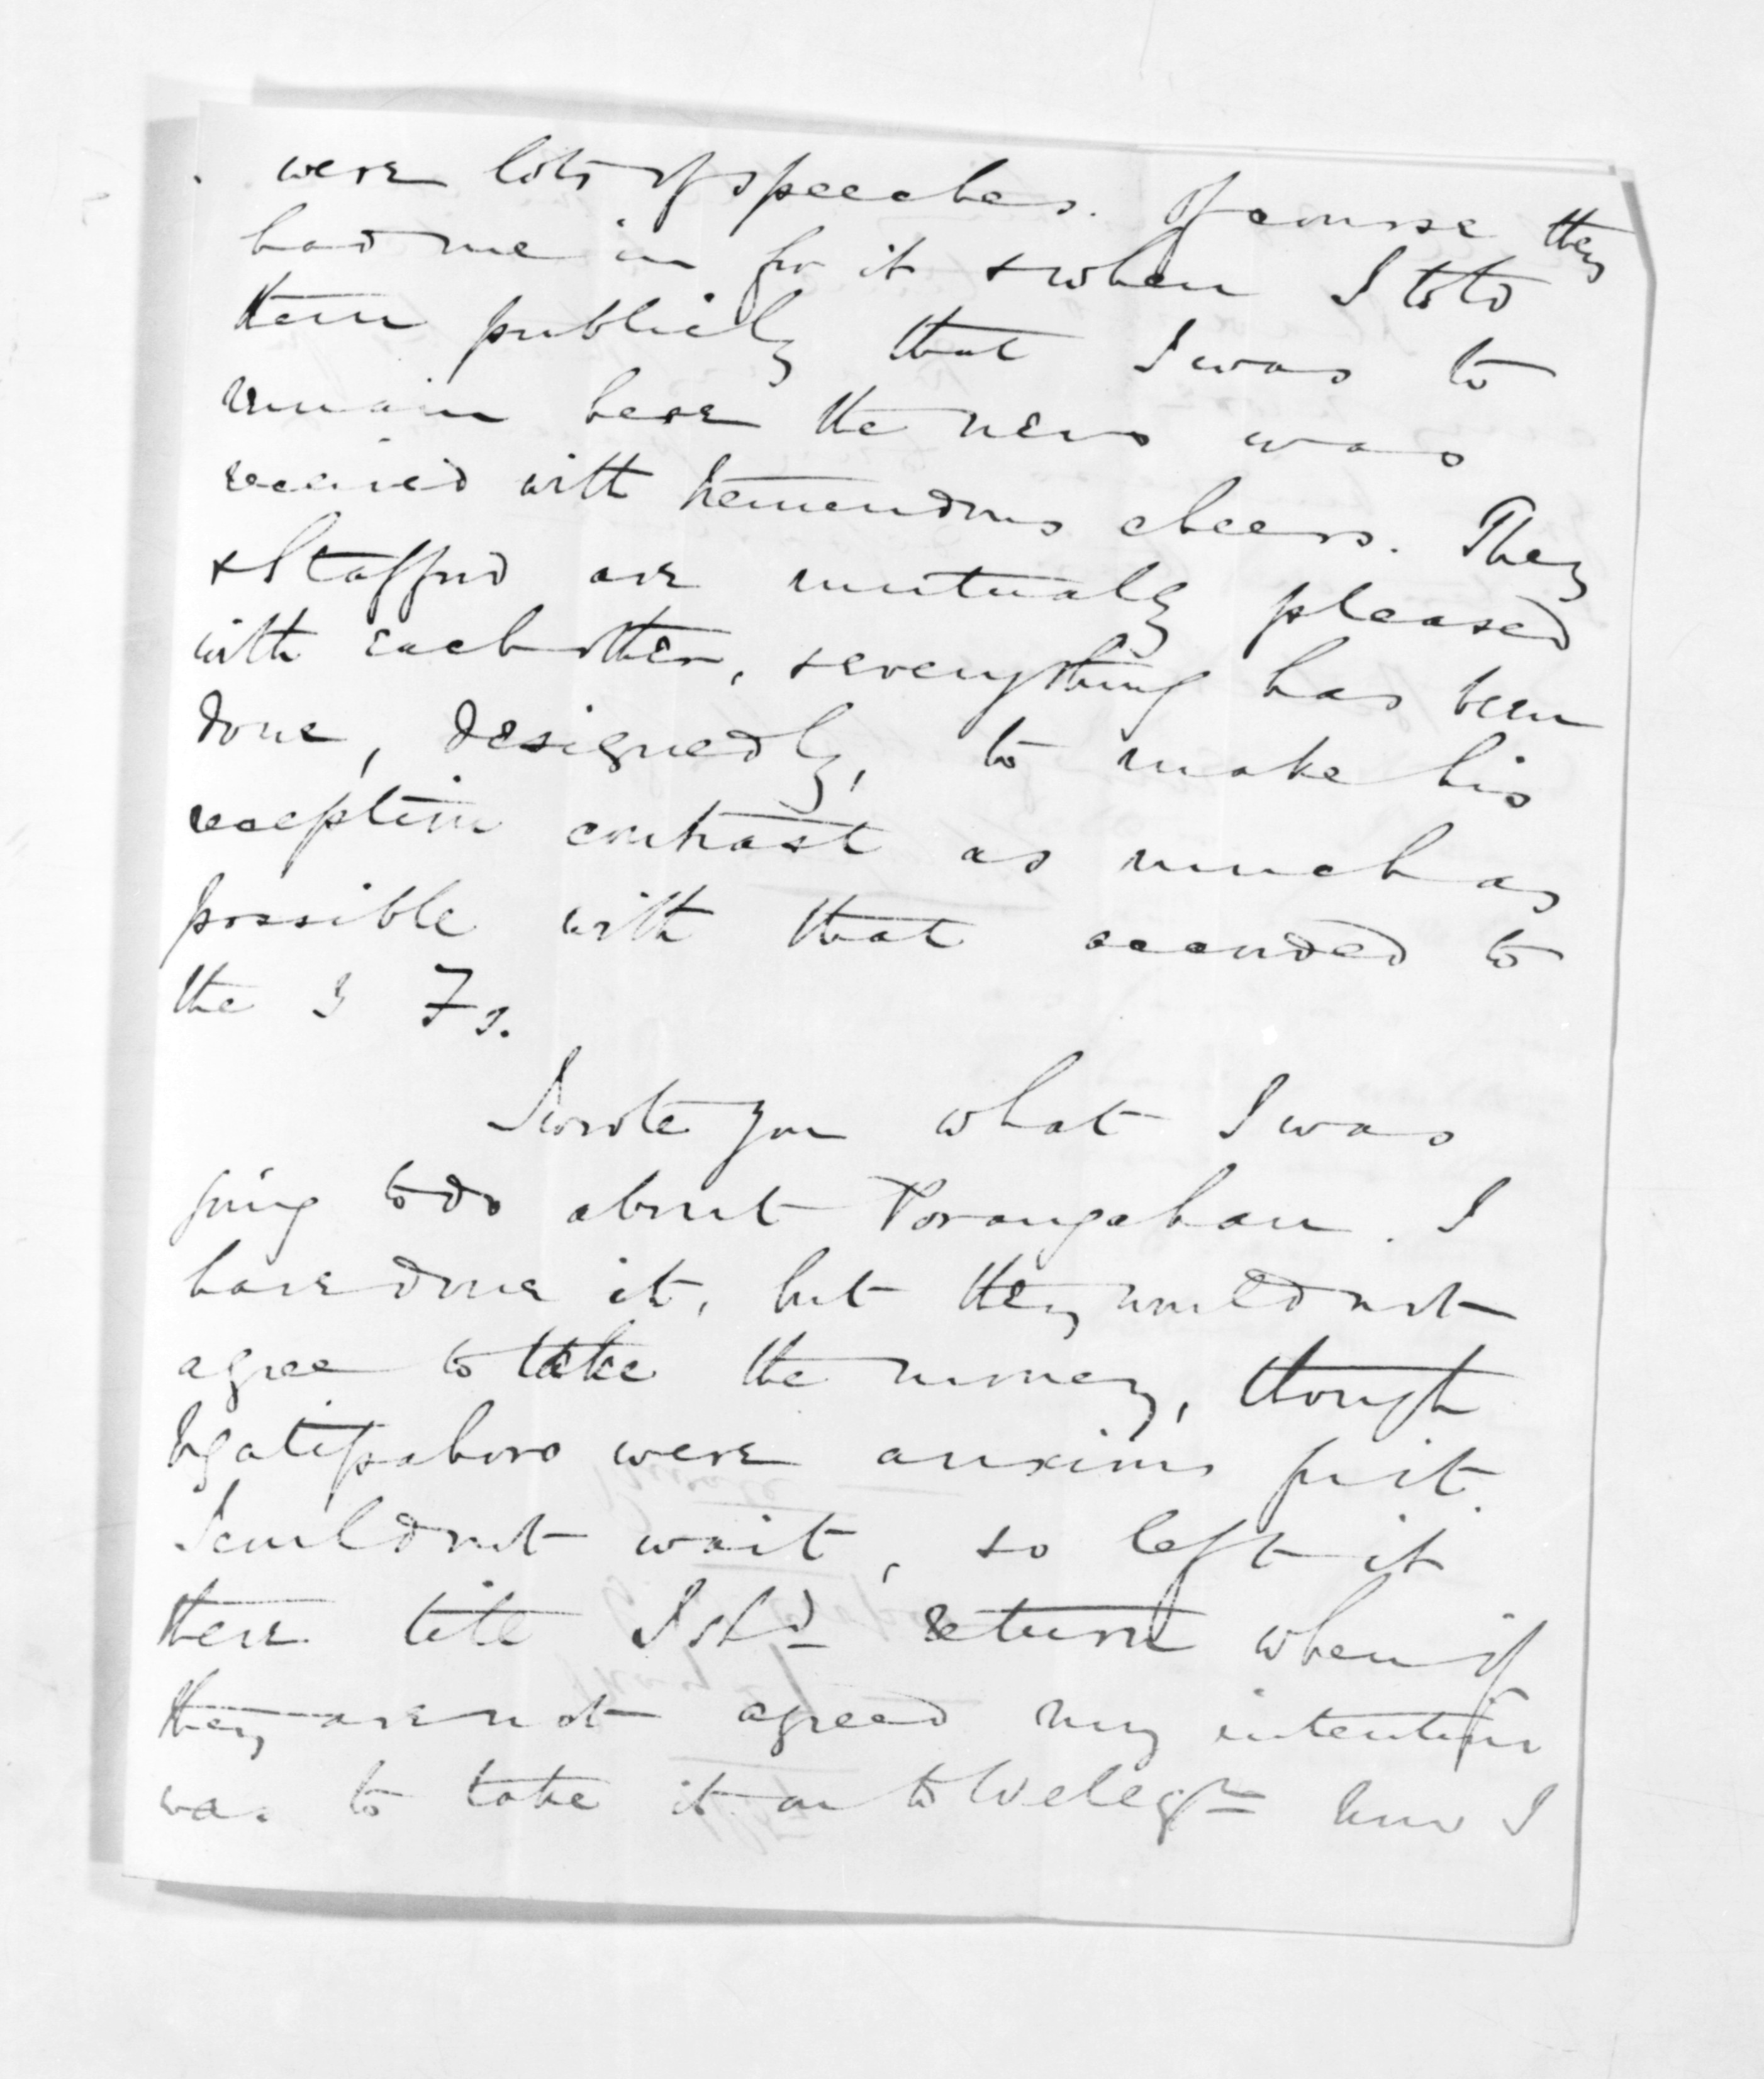 were lots of speeches. Of course they
had me in for it & when I told
them publicly that I was to
remain here the news was
received with tremendous cheers. They
& Stafford are mutually pleased
with each other, & everything has been
done, designedly, to make his
reception contrast as much as
possible with that accorded to
the 3 Fs.
I wrote you what I was
going to do about Porangahau. I
have done it, but they would not
agree to take the money, though
Ngatipahoro were anxious for it.
I could not wait, so left it
there till I shd return when if
they are not agreed my intention
was to take it on to Welegtn how I